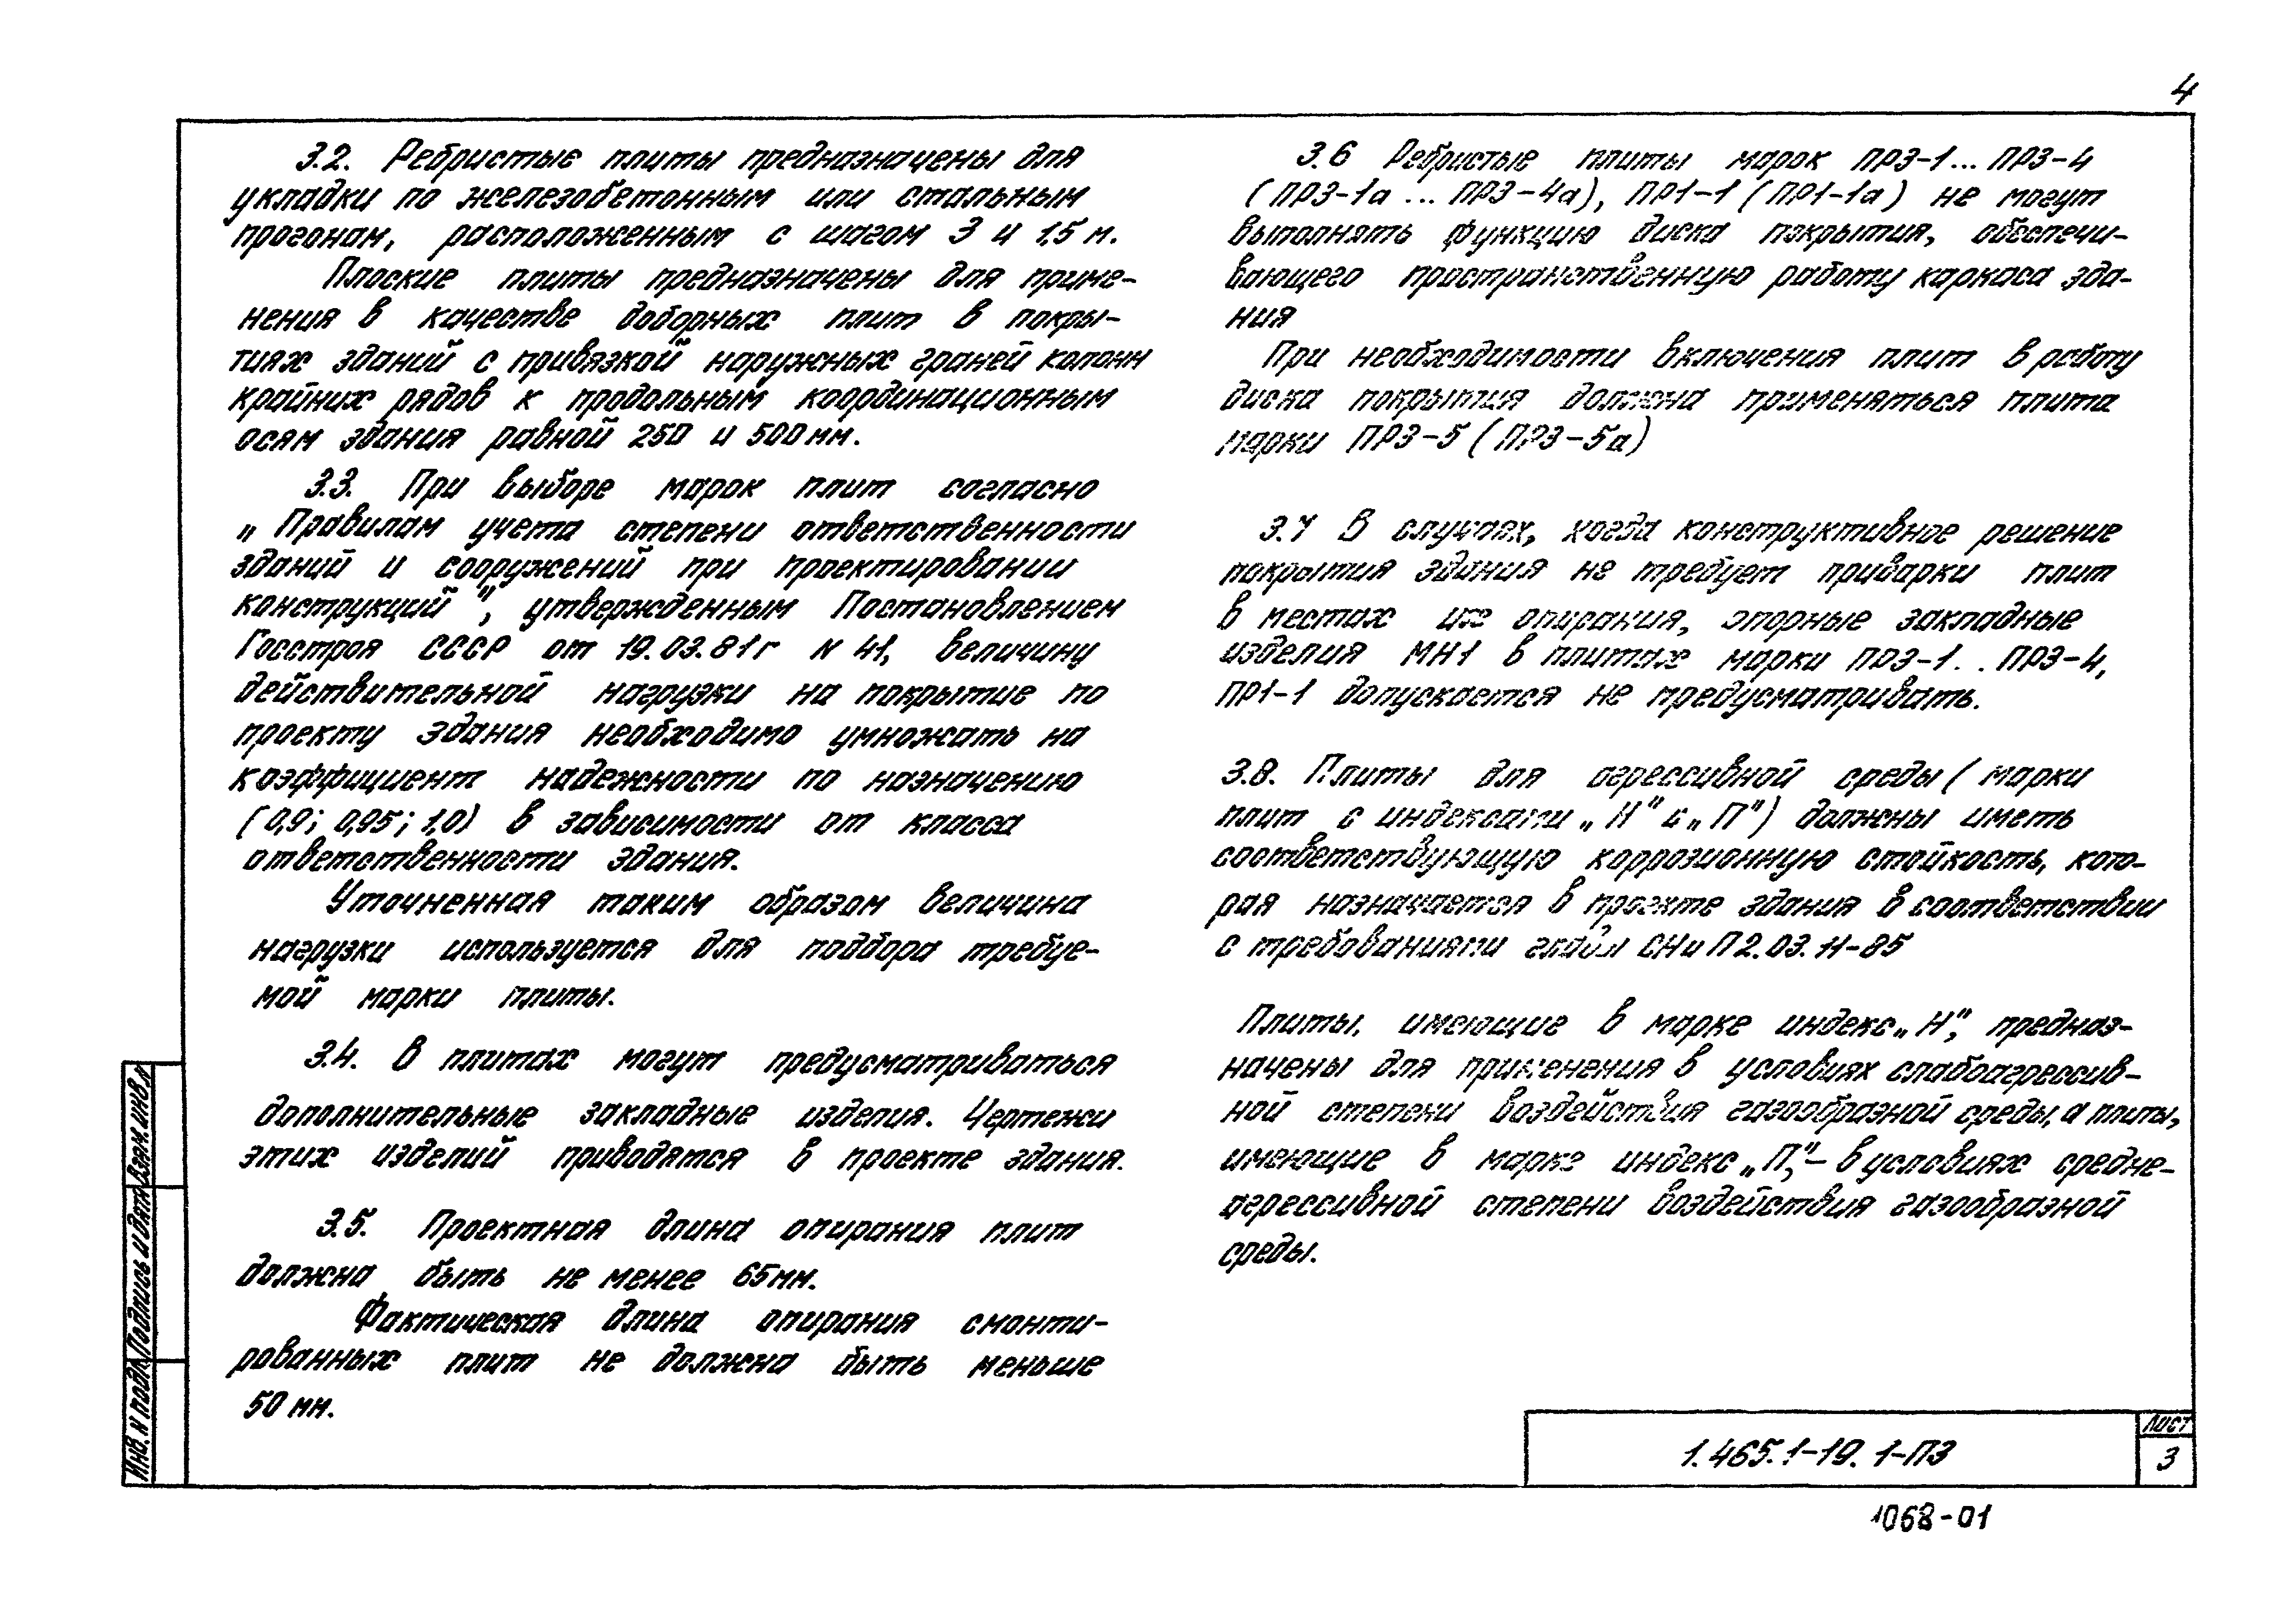 4
3.2. Ребристые плиты предназначены для
укладки по железобетонным или стальным
прогонам, расположенным с шагом 3 и 1,5 м.
Плоские плиты предназначены для приме-
нения в качестве доборных плит в покры-
тиях зданий с привязкой наружных граней колонн
крайних рядов к продольным координационным
осям здания равной 250 и 500 мм.
3.3. При выборе марок плит согласно
„Правилам учета степени ответственности
зданий и сооружений при проектировании
конструкций", утвержденным Постановлением
Госстроя СССР от 19.03.81г N 41, величину
действительной нагрузки на покрытие по
проекту здания необходимо умножать на
коэффициент надежности по назначению
(0,9; 0,95; 1,0) в зависимости от класса
ответственности здания.
Уточненная таким образом величина
нагрузки используется для подбора требуе-
мой марки плиты.
3.4. В плитах могут предусматриваться
дополнительные закладные изделия. Чертежи
этих изделий приводятся в проекте здания.
3.5. Проектная длина опирания плит
должна быть не менее 65мм.
Фактическая длина опирания смонти-
рованных плит не должна быть меньше
50 мм.
3.6 Ребристые плиты марок ПР3-1... ПР3-4
(ПР3-1а ... ПР3-4а), ПР1-1 (ПР1-1а) не могут
выполнять функцию диска покрытия, обеспечи-
вающего пространственную работу каркаса зда-
ния
При необходимости включения плит в работу
диска покрытия должна применяться плита
марки ПР3-5 (ПР3-5а)
3.7 В случаях, когда конструктивное решение
покрытия здания не требует приварки плит
в местах их опирания, опорные закладные
изделия МН1 в плитах марки ПР3-1. . ПР3-4,
ПР1-1 допускается не предусматривать.
3.8. Плиты для агрессивной среды (марки
плит с индексами „Н" и „П") должны иметь
соответствующую коррозионную стойкость, кото-
рая назначается в проекте здания в соответствии
с требованиями главы СНиП 2.03.11-85
Плиты, имеющие в марке индекс „Н", предназ-
начены для применения в условиях слабоагрессив-
ной степени воздействия газообразной среды, а плиты,
имеющие в марке индекс „П",- в условиях средне-
агрессивной степени воздействия газообразной
среды.
Инв. N подл.
Подпись и дата
Взам. инв. N
1.465.1-19. 1-ПЗ
Лист
3
1068-01